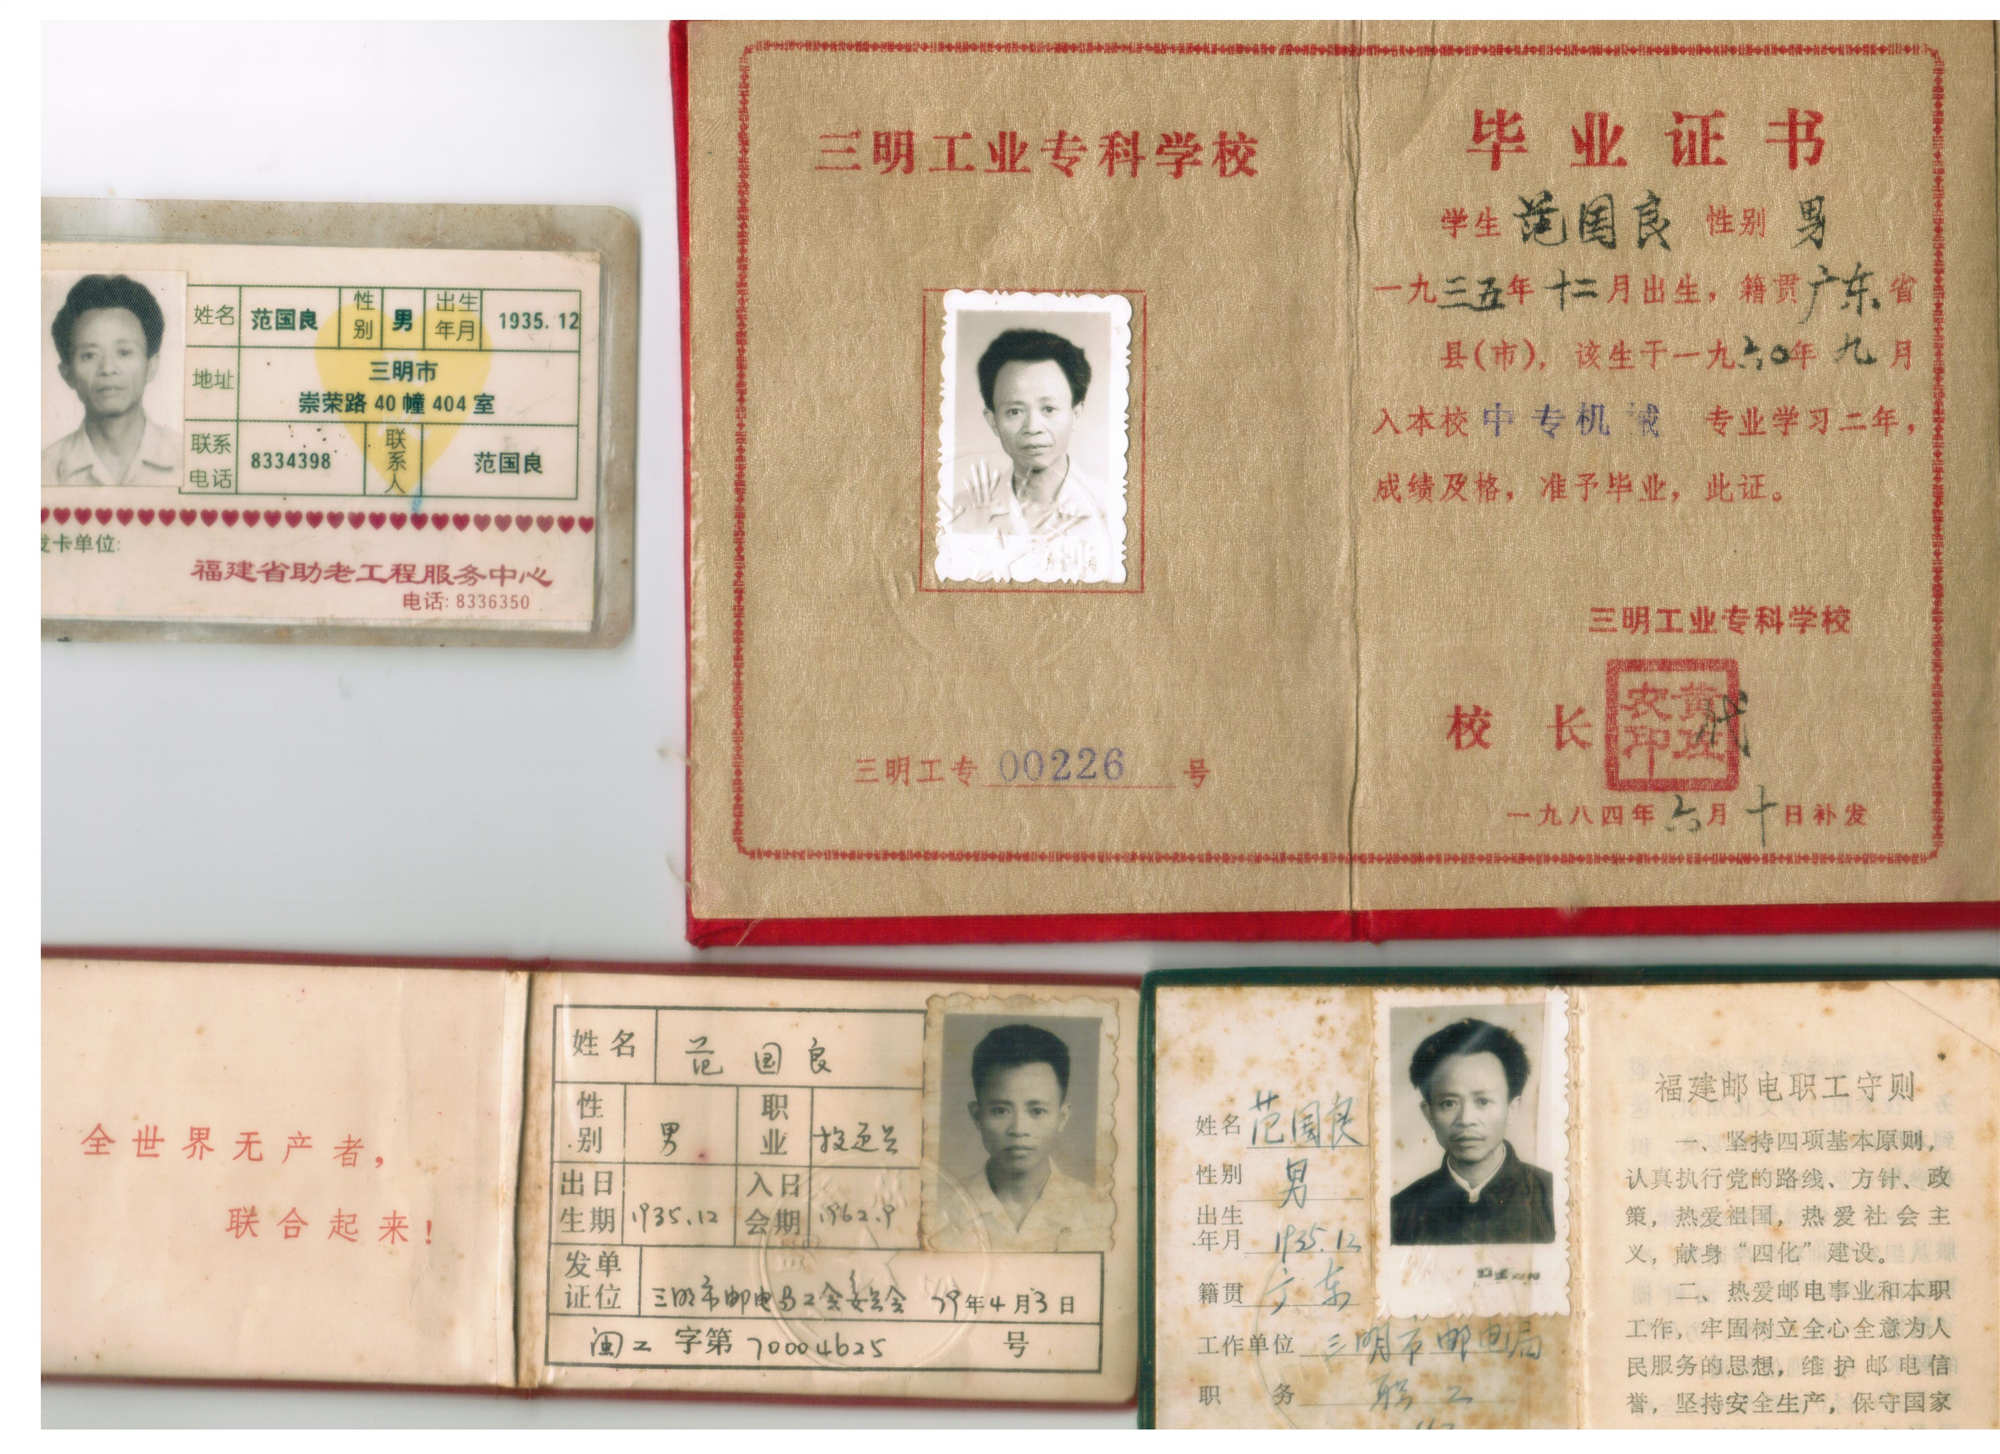 姓名 范国良 性别 男 出生年月 1935.12
地址 三明市
崇荣路 40 幢 404 室
联系电话 8334398 联系人 范国良
发卡单位:
福建省助老工程服务中心
电话: 8336350
三明工业专科学校
三明工专 00226 号
毕业证书
学生 范国良 性别 男
一九三五年十二月出生，籍贯广东省
县(市)，该生于一九六〇年九月
入本校中专机械 专业学习二年，
成绩及格，准予毕业，此证。
三明工业专科学校
校长
代
一九八四年六月十日补发
全世界无产者，
联合起来！
姓名 范国良
性别 男 职业 投递员
出生日期 1935.12 入会日期 1962.9
发证单位 三明市邮电局工会委员会 79年4月3日
闽工 字第 70004625 号
姓名 范国良
性别 男
出生年月 1935.12
籍贯 广东
工作单位 三明市邮电局
职务 职工
福建邮电职工守则
一、坚持四项基本原则，
认真执行党的路线、方针、政
策，热爱祖国，热爱社会主
义，献身“四化”建设。
二、热爱邮电事业和本职
工作，牢固树立全心全意为人
民服务的思想，维护邮电信
誉，坚持安全生产，保守国家